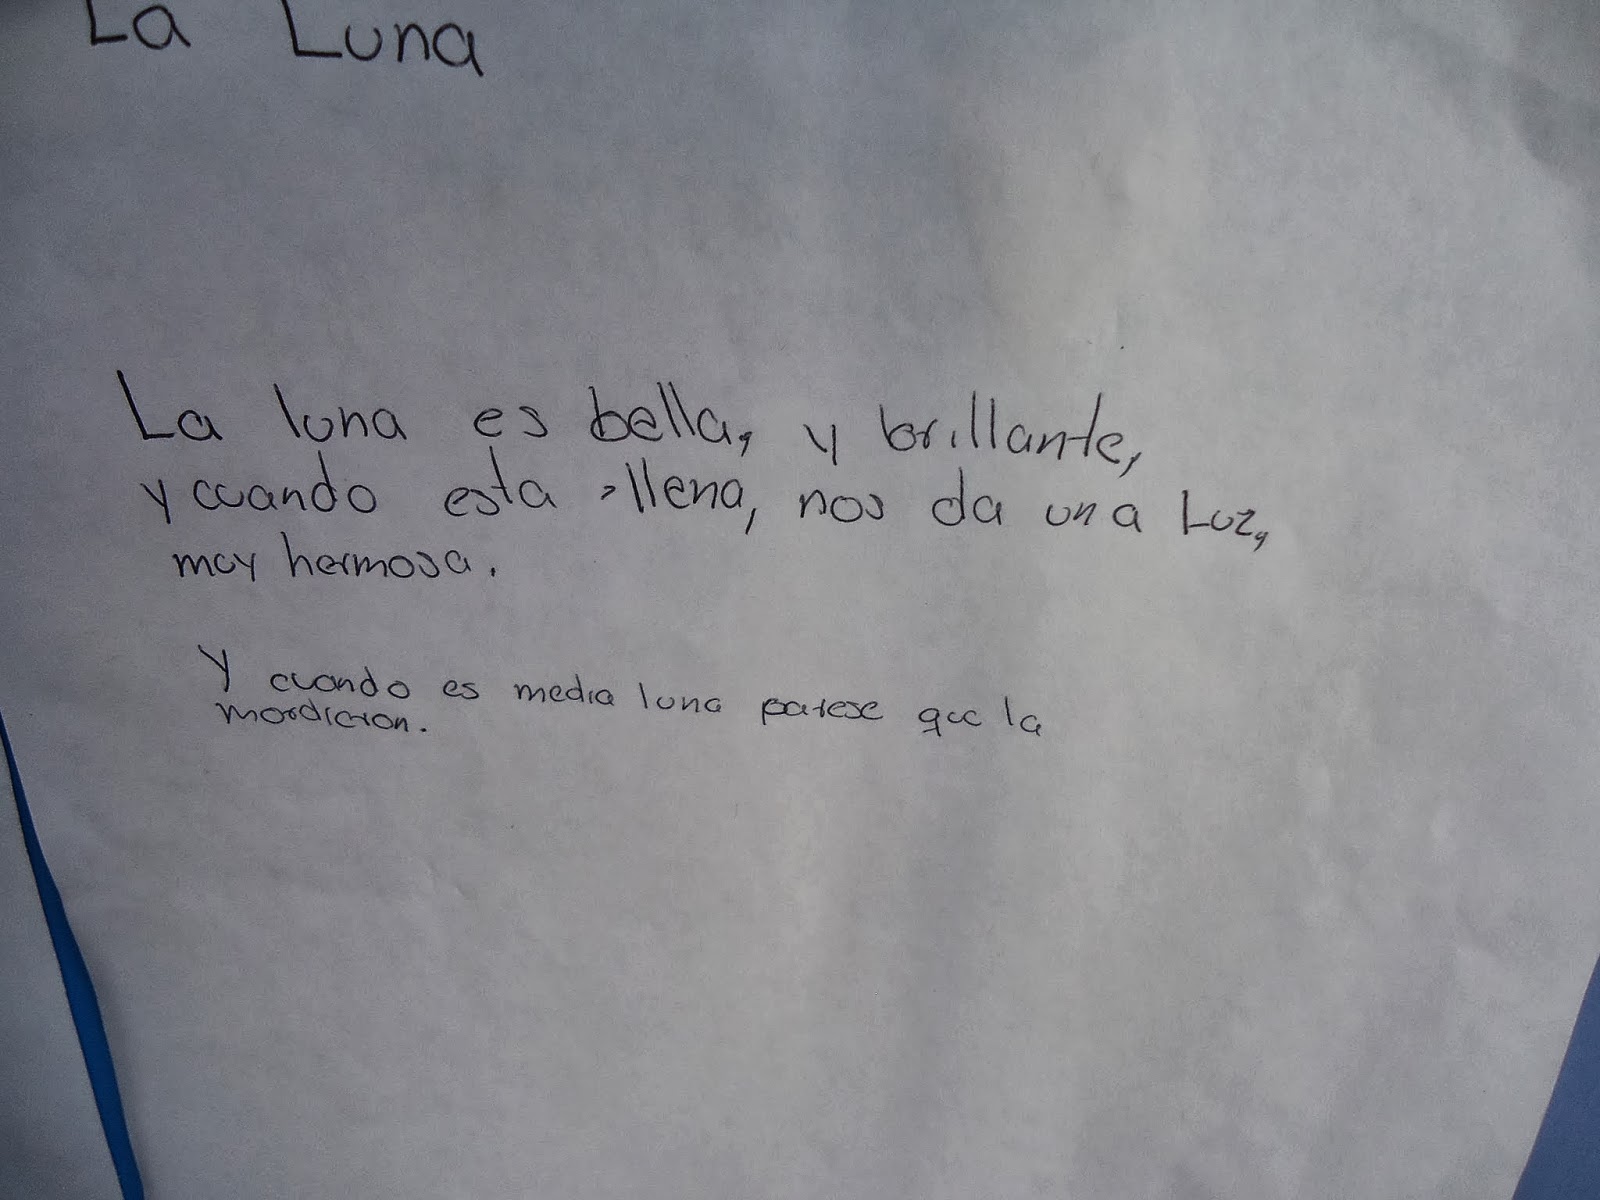 La Luna
La luna es bella, y brillante,
y cuando esta llena, nos da una Luz,
muy hermosa.
Y cuando es media luna parese que la
mordicion.